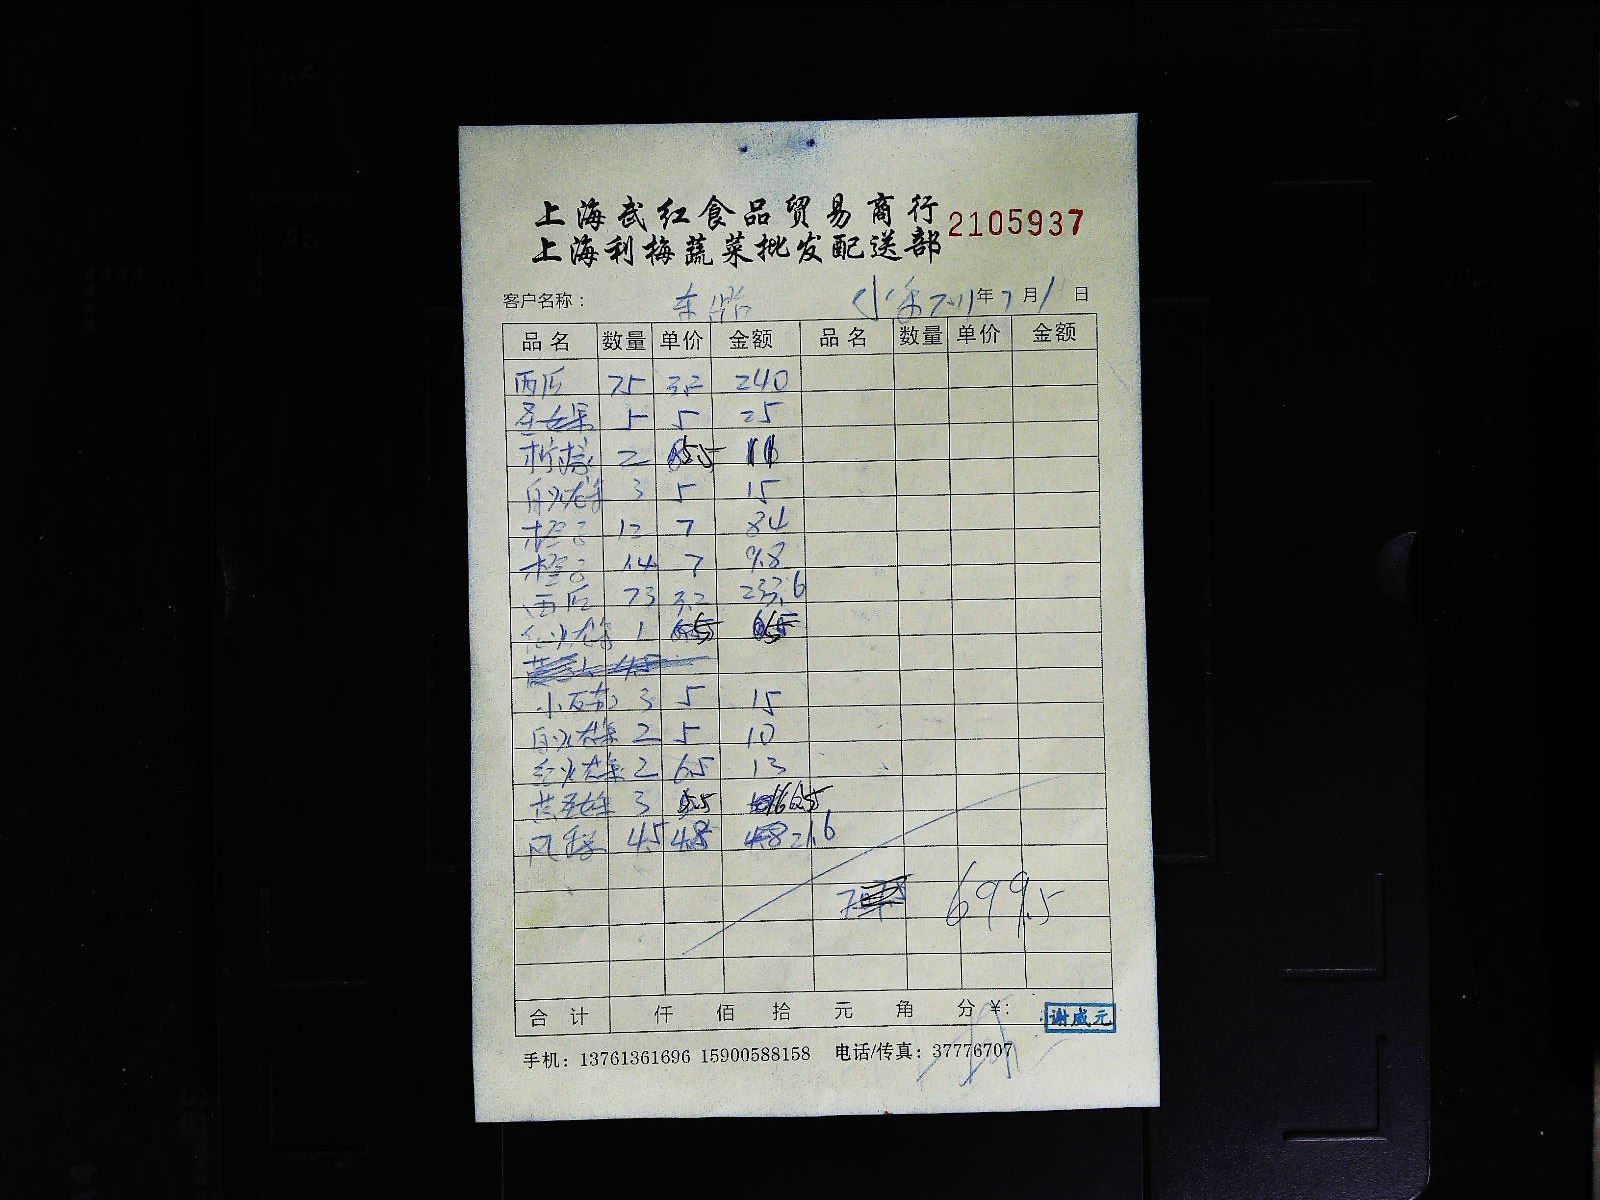 上海武红食品贸易商行 2105937
上海利梅蔬菜批发配送部
客户名称： 年7月1日
品名 数量 单价 金额 品名 数量 单价 金额
西瓜 75 3.2 240
圣女果 5 5 25
柠檬 2 5.5 11
白火龙果 3 5 15
橙子 12 7 84
橙子 1.4 7 9.8
西瓜 73 3.2 233.6
红火龙果 1 6.5 6.5
小 3 5 15
白火龙果 2 5 10
红火龙果 2 6.5 13
黄圣女果 3 5.5 16.5
风梨 4.5 4.8 21.6
699.5
合计 仟 佰 拾 元 角 分 ¥:
谢威元
手机：13761361696 15900588158 电话/传真：37776707